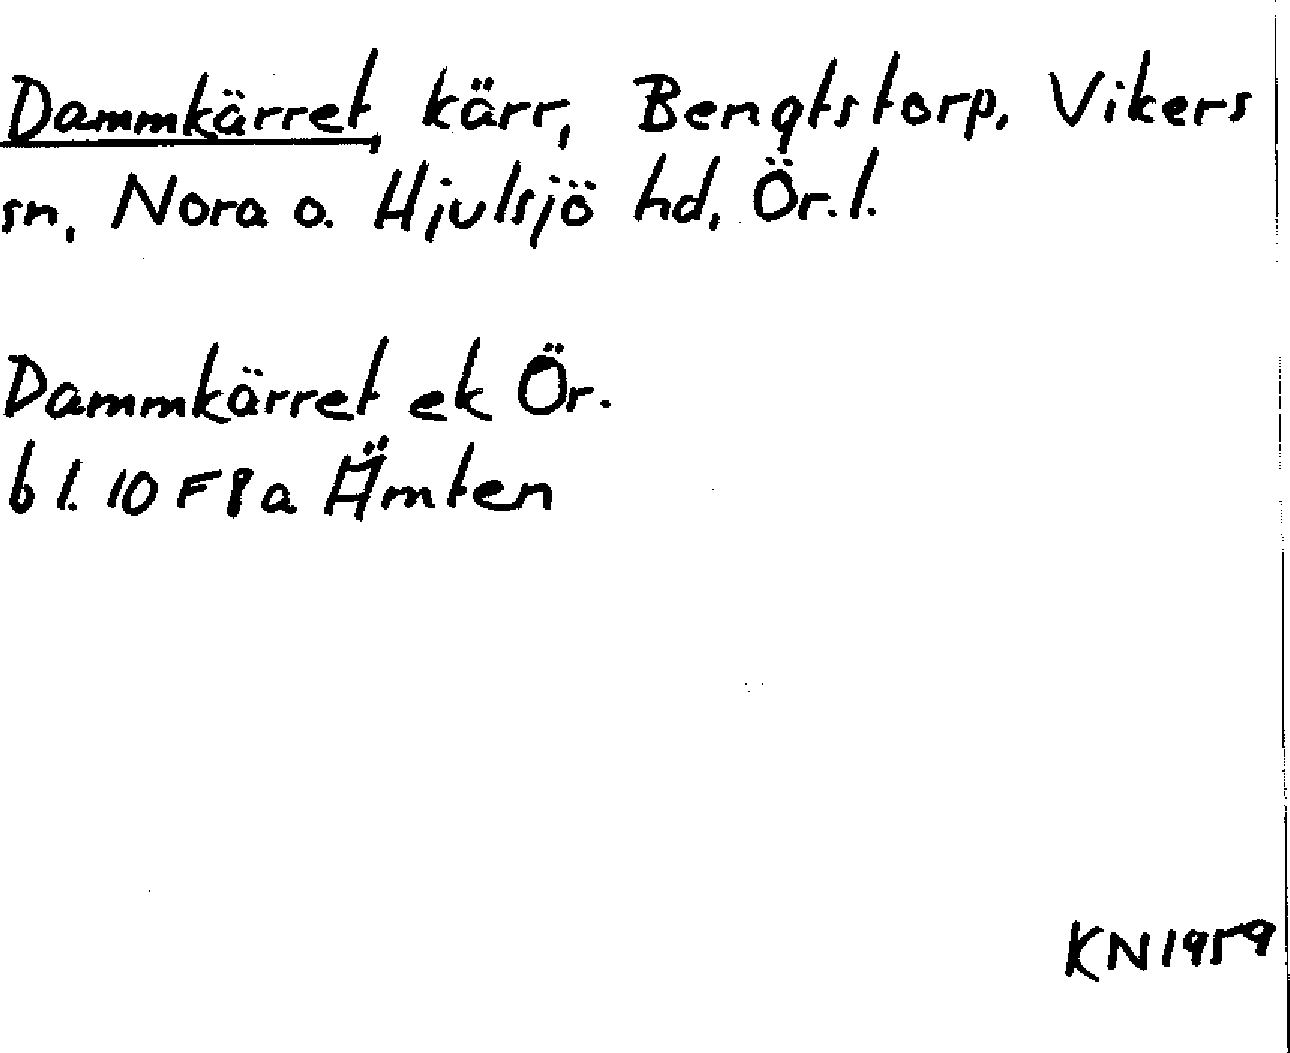 Dammkärret, kärr, Bengtstorp, Vikers
sn, Nora o. Hjulsjö hd, Ör. l.
Dammkärret ek Ör.
bl. 10 F8a Ämten
KN 1959